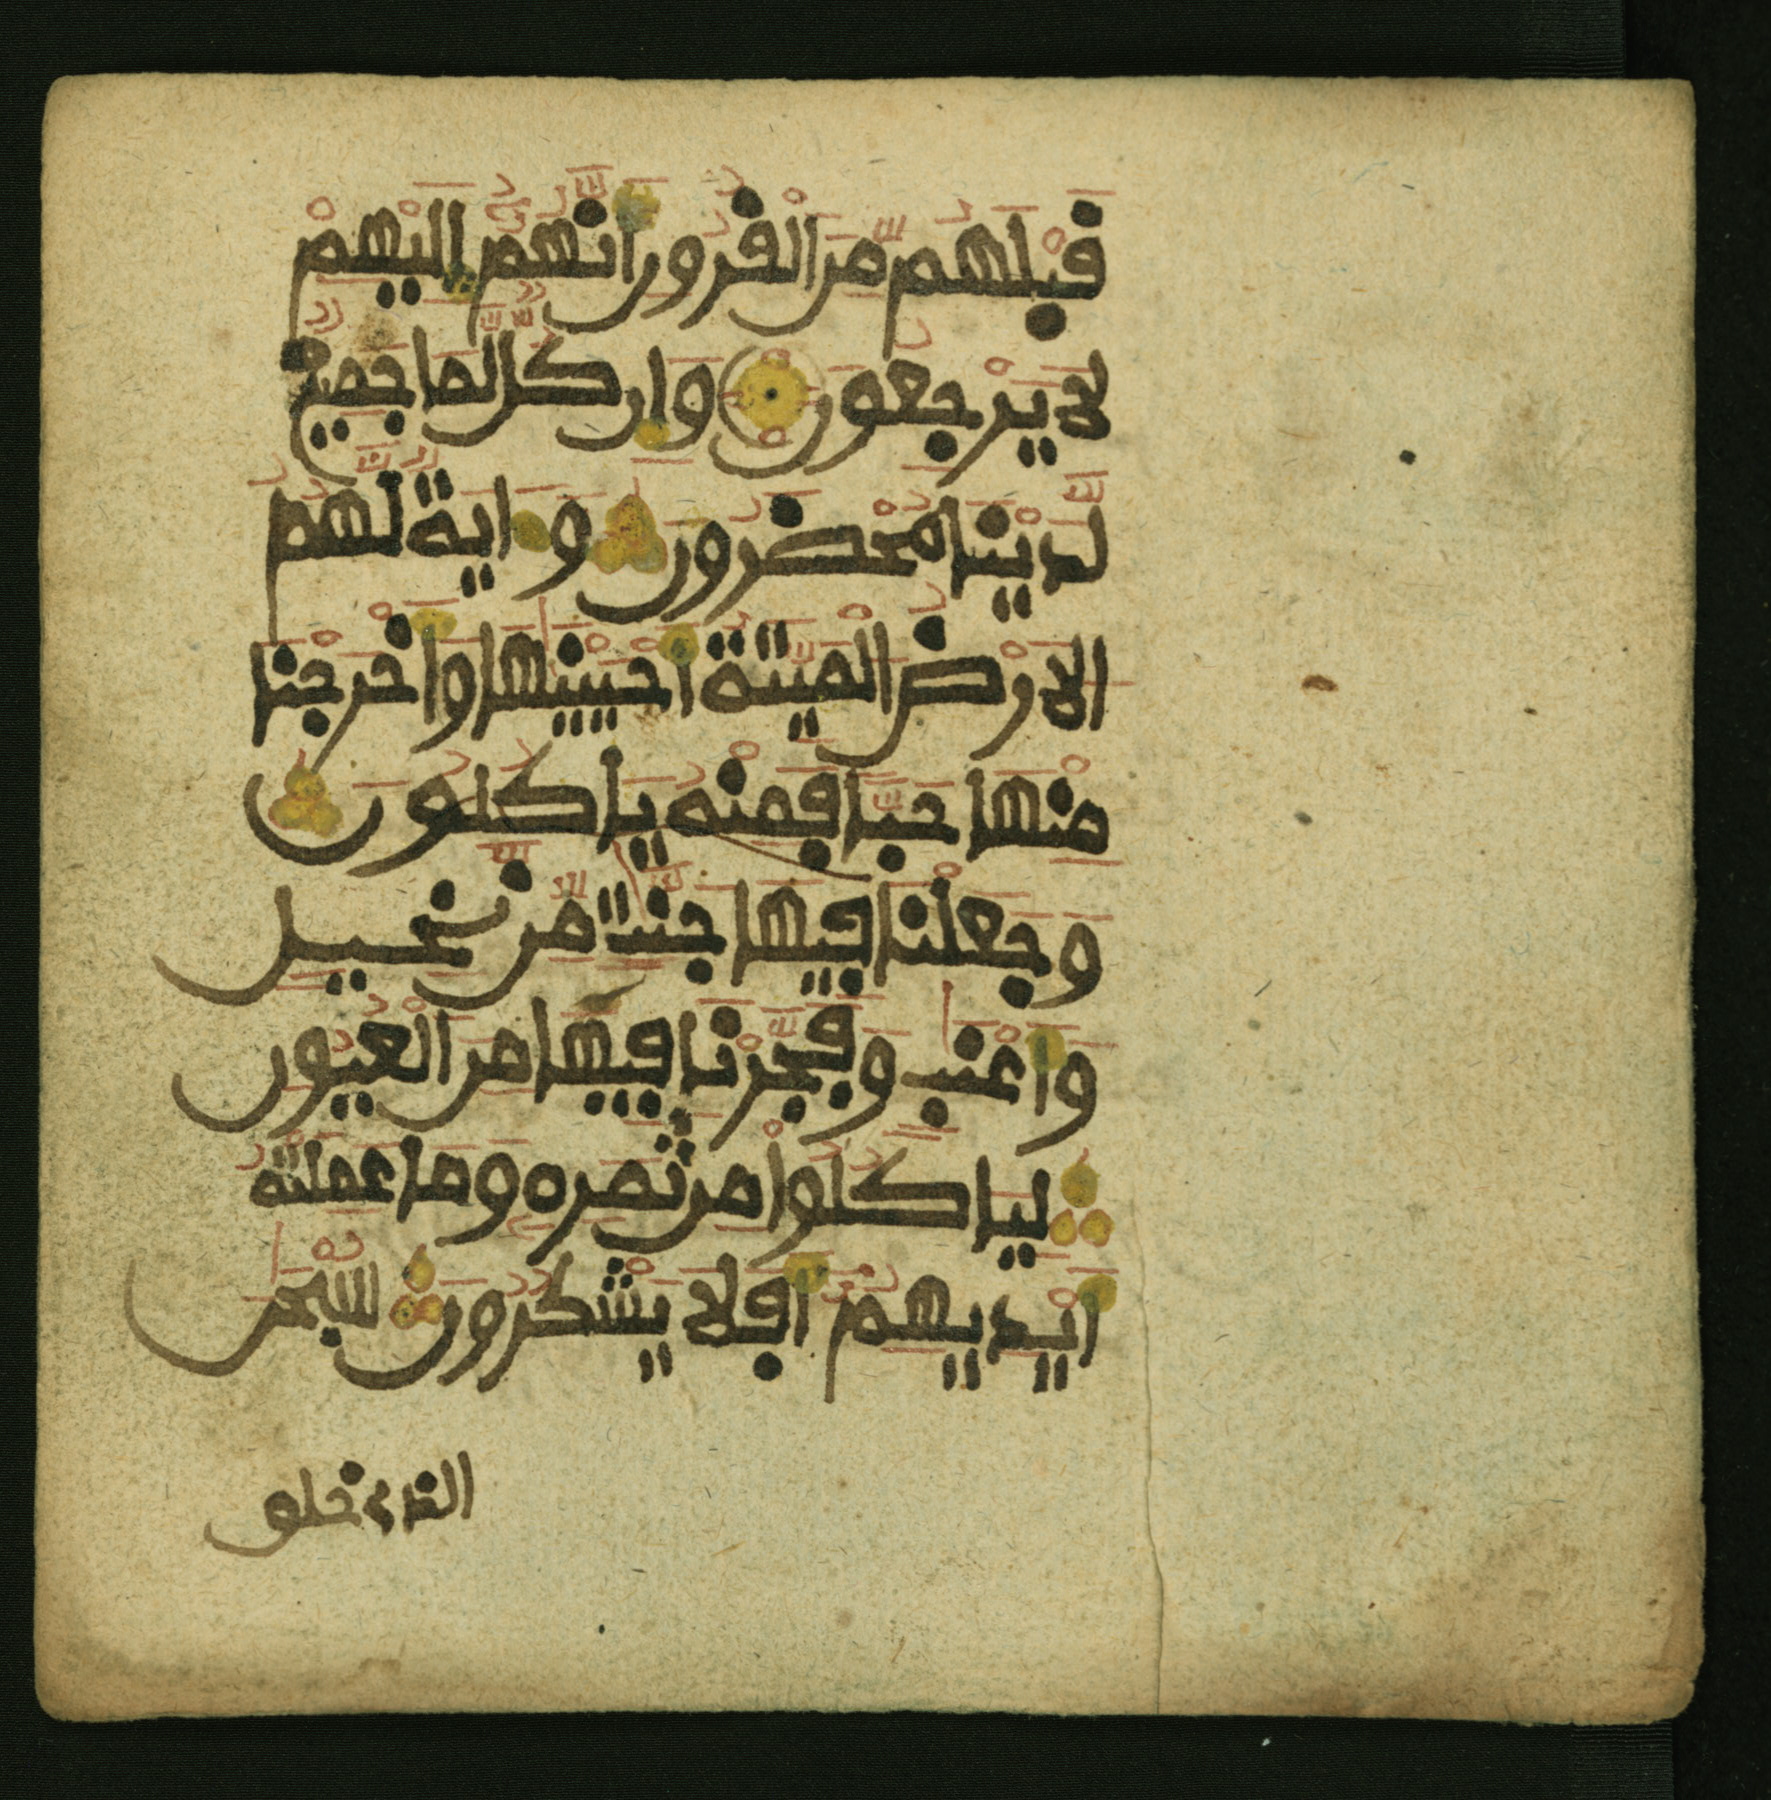 قبلهم من القرون أنهم إليهم
لا يرجعون وإن كل لما جميع
لدينا محضرون وءاية لهم
الارض الميتة أحيينها وأخرجنا
منها حبا فمنه ياكلون
وجعلنا فيها جنت من نخيل
وأعنب وفجرنا فيها من العيون
لياكلوا من ثمره وما عملته
أيديهم أفلا يشكرون سبحن
الذى خلق